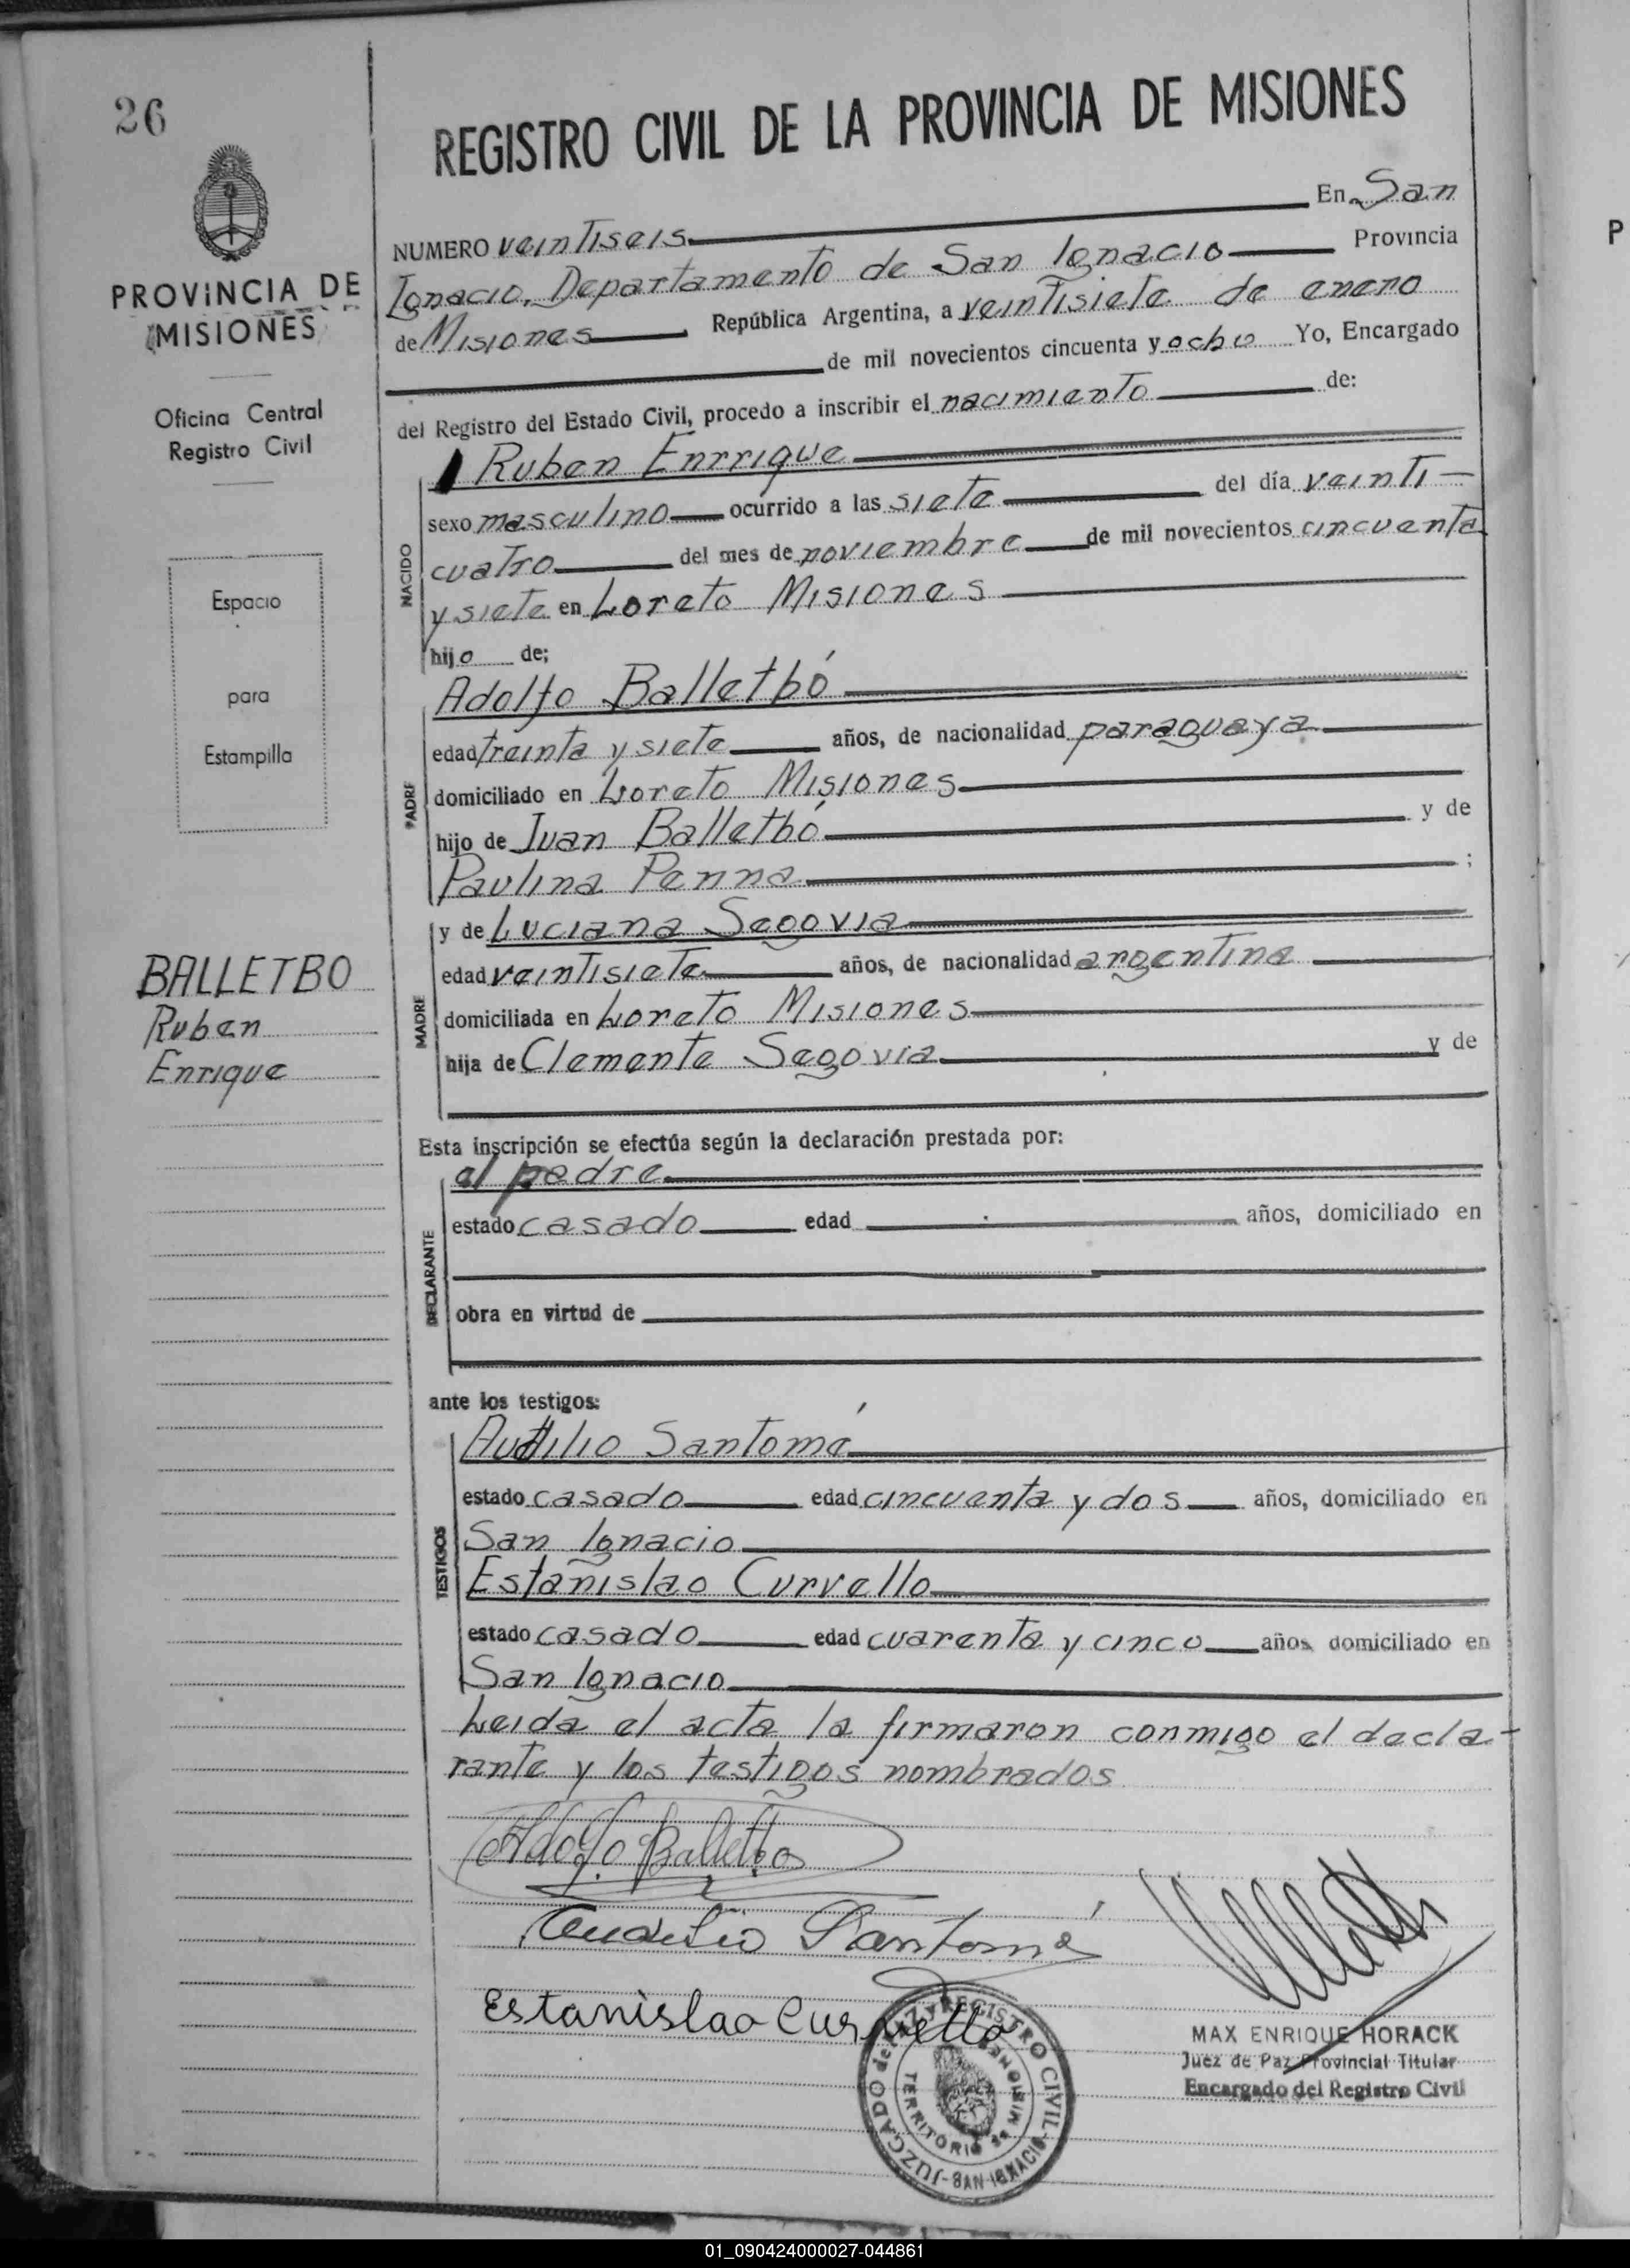 26
REGISTRO CIVIL DE LA PROVINCIA DE MISIONES
PROVINCIA DE
MISIONES
Oficina Central
Registro Civil
Espacio
para
Estampilla
BALLETBO
Ruben
Enrique
NUMERO veintiseis En San
Ignacio, Departamento de San Ignacio Provincia
de Misiones República Argentina, a veintisiete de enero
de mil novecientos cincuenta y ocho Yo, Encargado
del Registro del Estado Civil, procedo a inscribir el nacimiento de:
NACIDO
Ruben Enrrique
sexo masculino ocurrido a las siete del día veinti-
cuatro del mes de noviembre de mil novecientos cincuenta
y siete en Loreto Misiones
hijo de;
PADRE
Adolfo Balletbó
edad treinta y siete años, de nacionalidad paraguaya
domiciliado en Loreto Misiones
hijo de Juan Balletbó y de
Paulina Penna ;
MADRE
y de Luciana Segovia
edad veintisiete años, de nacionalidad argentina
domiciliada en Loreto Misiones
hija de Clemente Segovia y de
Esta inscripción se efectúa según la declaración prestada por:
DECLARANTE
el padre
estado casado edad años, domiciliado en
obra en virtud de
ante los testigos:
TESTIGOS
Santomá
estado casado edad cincuenta y dos años, domiciliado en
San Ignacio
Estanislao Curvello
estado casado edad cuarenta y cinco años domiciliado en
San Ignacio
Leida el acta la firmaron conmigo el decla-
rante y los testigos nombrados
Adolfo Balletbo
Santomá
Estanislao Curvello
JUZGADO de PAZ y REGISTRO CIVIL - SAN IGNACIO -
TERRITORIO de MISIONES
MAX ENRIQUE HORACK
Juez de Paz Provincial Titular
Encargado del Registro Civil
P
01_090424000027-044861